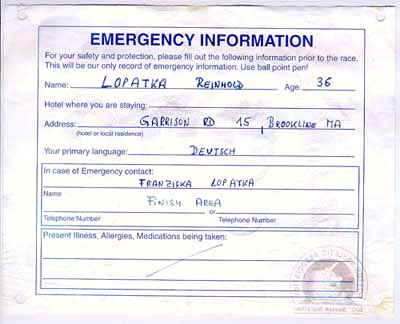 EMERGENCY INFORMATION
For your safety and protection, please fill out the following information prior to the race.
This will be our only record of emergency information. Use ball point pen!
Name: LOPATKA REINHOLD Age: 36
Hotel where you are staying:
Address: GARRISON RD 15, BROOKLINE MA
(hotel or local residence)
Your primary language: DEUTSCH
In case of Emergency contact:
FRANZISKA LOPATKA
Name
FINISH AREA
or
Telephone Number Telephone Number
Present Illness, Allergies, Medications being taken: